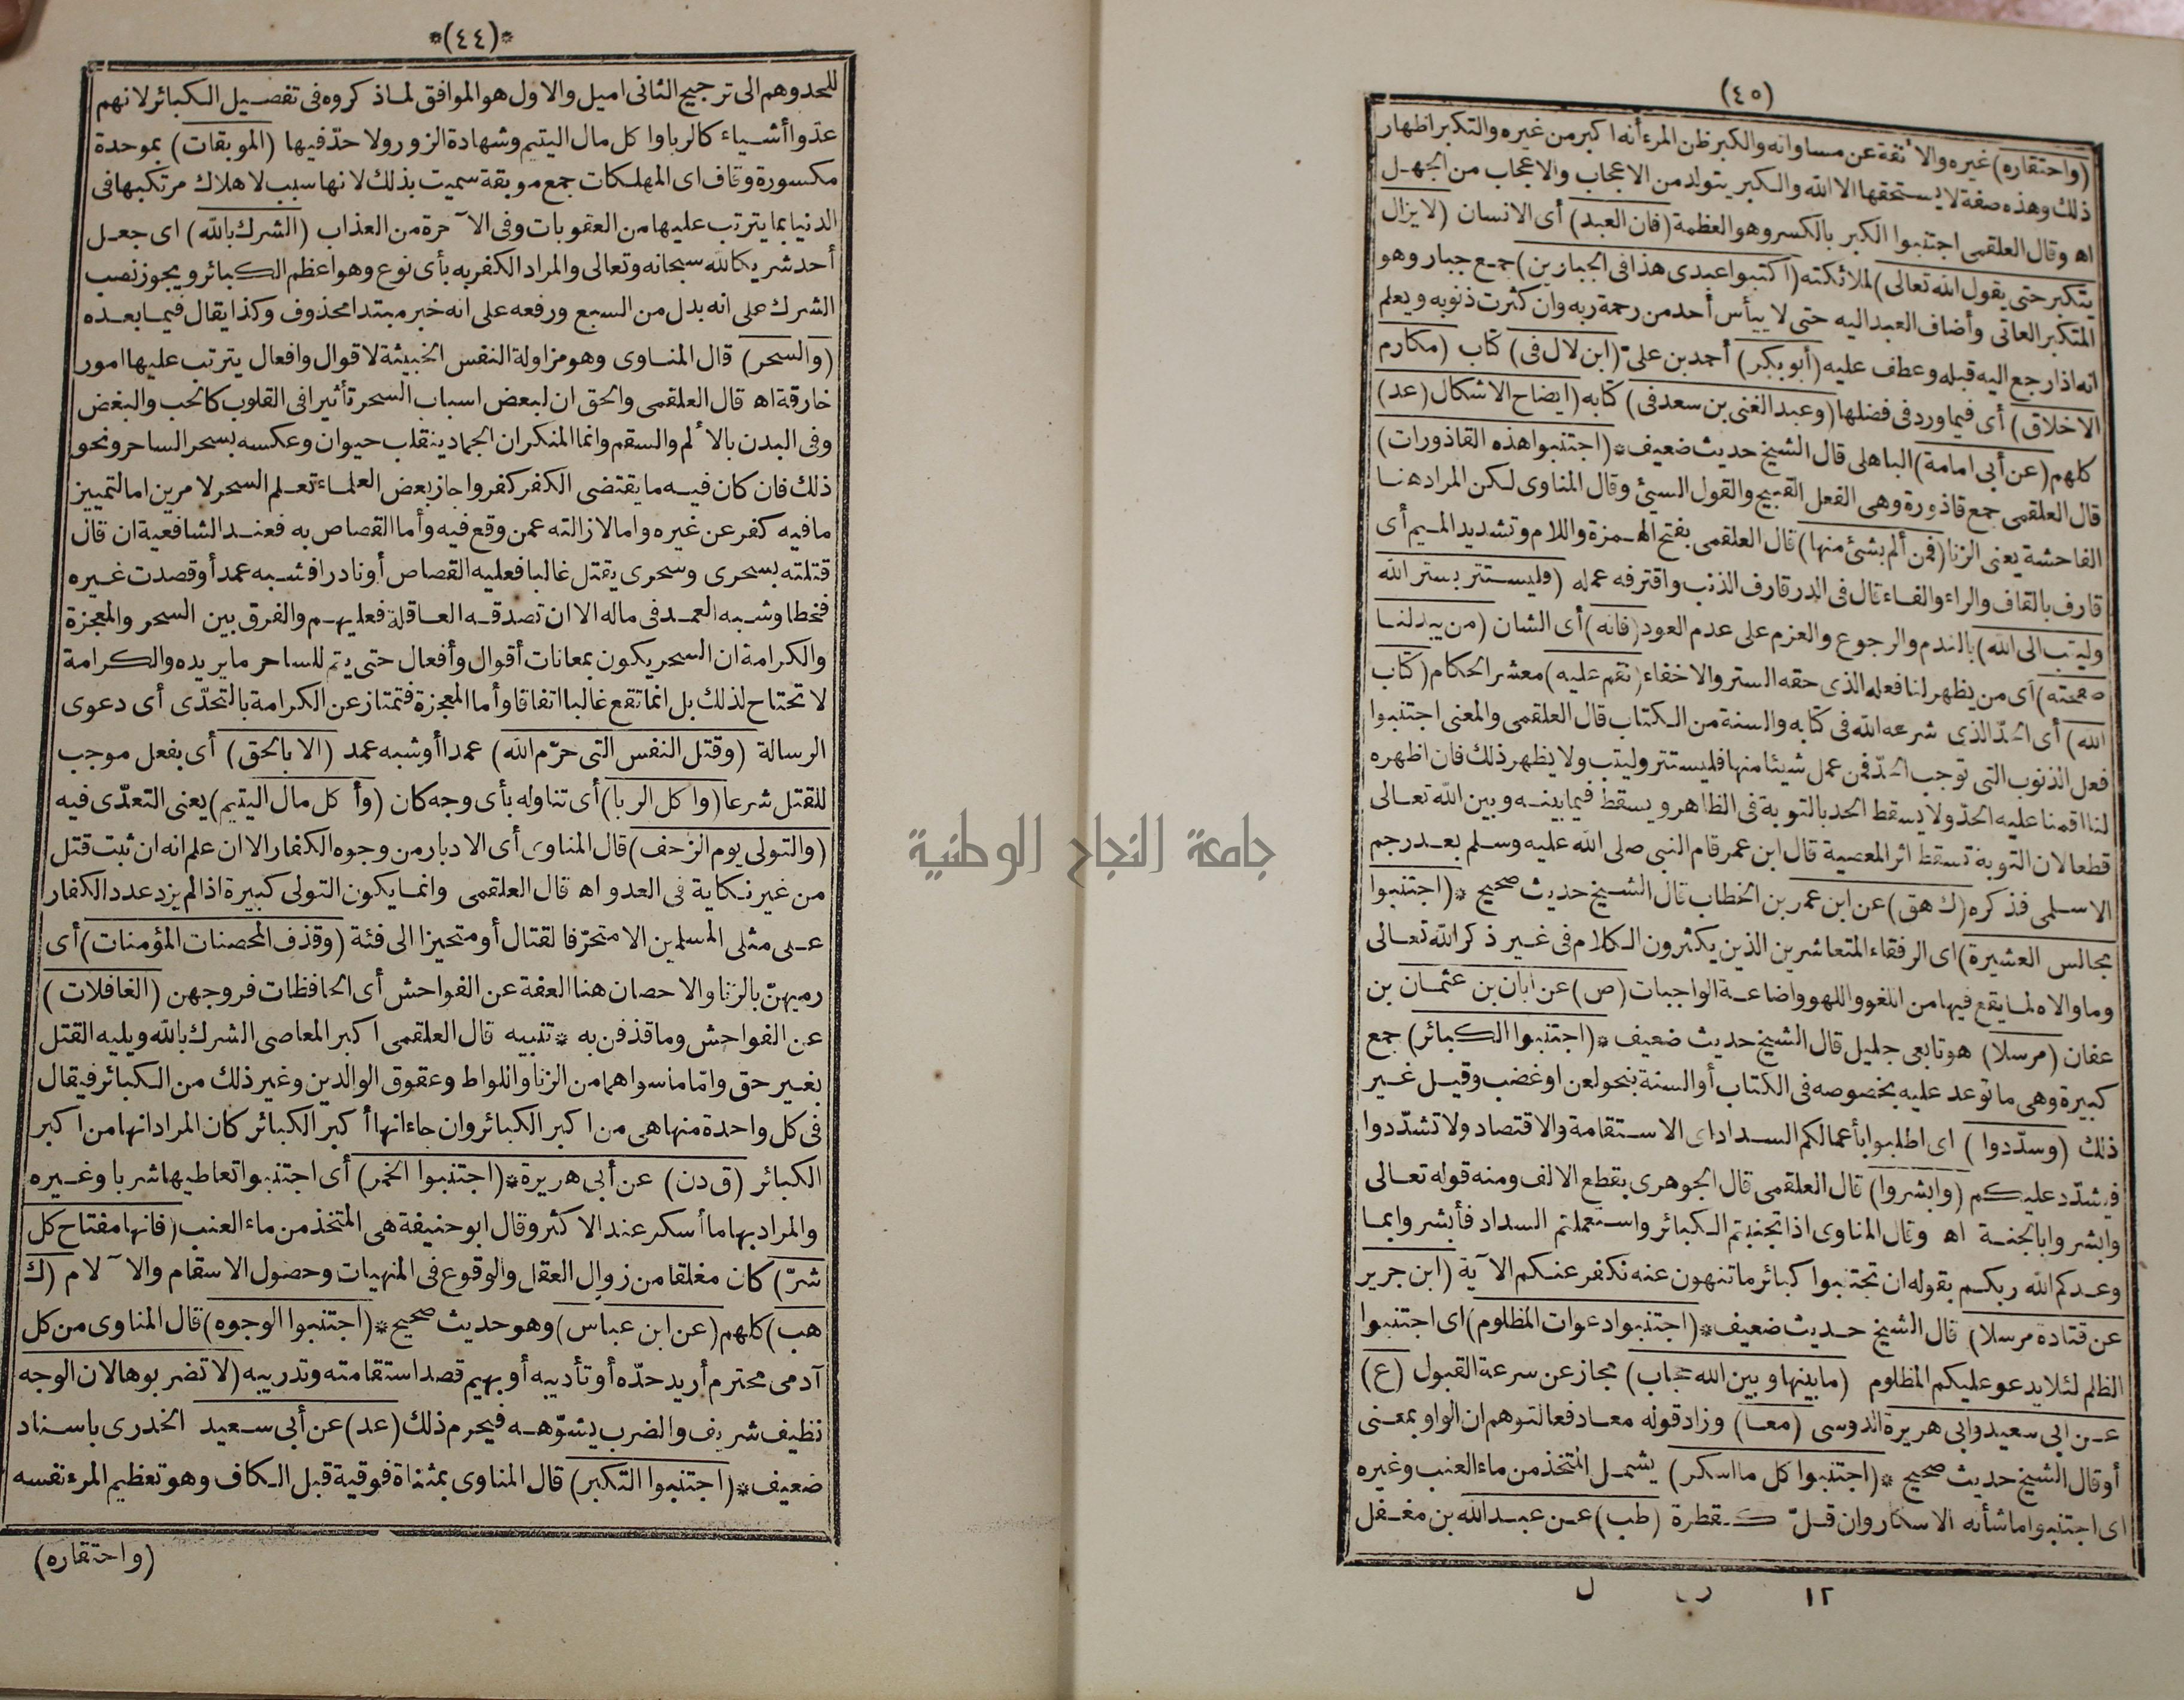 *(٤٤)*
للحد وهم الى ترجيح الثانى اميل والاول هو الموافق لما ذكروه فى تفصيل الكبائر لانهم
عدّوا أشياء كالربا واكل مال اليتيم وشهادة الزور ولا حدّ فيها (الموبقات) بموحدة
مكسورة وقاف اى المهلكات جمع موبقة سميت بذلك لانها سبب لاهلاك مرتكبها فى
الدنيا بما يترتب عليها من العقوبات وفى الآخرة من العذاب (الشرك بالله) اى جعل
أحد شريكا لله سبحانه وتعالى والمراد الكفر به بأى نوع وهو اعظم الكبائر ويجوز نصب
الشرك على انه بدل من السبع ورفعه على انه خبر مبتدا محذوف وكذا يقال فيما بعده
(والسحر) قال المناوى وهو مزاولة النفس الخبيثة لاقوال وافعال يترتب عليها امور
خارقة اه قال العلقمى والحق ان لبعض اسباب السحر تأثيرا فى القلوب كالحب والبغض
وفى البدن بالألم والسقم وانما المنكر ان الجماد ينقلب حيوان وعكسه بسحر الساحر ونحو
ذلك فان كان فيه ما يقتضى الكفر كفر واجاز بعض العلماء تعلم السحر لامرين اما لتمييز
ما فيه كفر عن غيره واما لازالته عمن وقع فيه وأما القصاص به فعند الشافعية ان قال
قتلته بسحرى وسحرى يقتل غالبا فعليه القصاص أو نادرا فشبه عمد أو قصدت غيره
فخطا وشبه العمد فى ماله الا ان تصدقه العاقلة فعليهم والفرق بين السحر والمعجزة
والكرامة ان السحر يكون بمعانات أقوال وأفعال حتى يتم للساحر ما يريده والكرامة
لا تحتاج لذلك بل انما تقع غالبا اتفاقا وأما المعجزة فتمتاز عن الكرامة بالتحدّى أى دعوى
الرسالة (وقتل النفس التى حرّم الله) عمدا أو شبه عمد (الا بالحق) أى بفعل موجب
للقتل شرعا (واكل الربا) أى تناوله بأى وجه كان (وأكل مال اليتيم) يعنى التعدّى فيه
(والتولى يوم الزحف) قال المناوى أى الادبار من وجوه الكفار الا ان علم انه ان ثبت قتل
من غير نكاية فى العدو اه قال العلقمى وانما يكون التولى كبيرة اذا لم يزد عدد الكفار
على مثلى المسلمين الا متحرّفا لقتال أو متحيزا الى فئة (وقذف المحصنات المؤمنات) أى
رميهنّ بالزنا والاحصان هنا العفة عن الفواحش أى الحافظات فروجهن (الغافلات)
عن الفواحش وما قذفن به * تنبيه قال العلقمى اكبر المعاصى الشرك بالله ويليه القتل
بغير حق وامّا ما سواهما من الزنا واللواط وعقوق الوالدين وغير ذلك من الكبائر فيقال
فى كل واحدة منها هى من اكبر الكبائر وان جاء انها أكبر الكبائر كان المراد انها من اكبر
الكبائر (ق د ن) عن أبى هريرة * (اجتنبوا الخمر) أى اجتنبوا تعاطيها شربا وغيره
والمراد بها ما أسكر عند الاكثر وقال ابو حنيفة هى المتخذ من ماء العنب (فانها مفتاح كل
شرّ) كان مغلقا من زوال العقل والوقوع فى المنهيات وحصول الاسقام والآلام (ك
هب) كلهم (عن ابن عباس) وهو حديث صحيح * (اجتنبوا الوجوه) قال المناوى من كل
آدمى محترم أريد حدّه أو تأديبه أو بهيم قصد استقامته وتدريبه (لا تضربوها لان الوجه
نظيف شريف والضرب يشوّهه فيحرم ذلك (عد) عن أبى سعيد الخدرى باسناد
ضعيف * (اجتنبوا التكبر) قال المناوى بمثناة فوقية قبل الكاف وهو تعظيم المرء نفسه
(واحتقاره)
(٤٥)
(واحتقاره) غيره والأنفة عن مساواته والكبر ظن المرء أنه اكبر من غيره والتكبر اظهار
ذلك وهذه صفة لا يستحقها الا الله والكبر يتولد من الاعجاب والاعجاب من الجهل
اه وقال العلقمى اجتنبوا الكبر بالكسر وهو العظمة (فان العبد) أى الانسان (لا يزال
يتكبر حتى يقول الله تعالى) لملائكته (اكتبوا عبدى هذا فى الجبارين) جمع جبار وهو
المتكبر العاتى وأضاف العبد اليه حتى لا ييأس أحد من رحمة ربه وان كثرت ذنوبه ويعلم
انه اذا رجع اليه قبله وعطف عليه (أبو بكر) أحمد بن علىّ (ابن لال فى) كتاب (مكارم
الاخلاق) أى فيما ورد فى فضلها (وعبد الغنى بن سعد فى) كتابه (ايضاح الاشكال (عد)
كلهم (عن أبى امامة) الباهلى قال الشيخ حديث ضعيف * (اجتنبوا هذه القاذورات)
قال العلقمى جمع قاذورة وهى الفعل القبيح والقول السيئ وقال المناوى لكن المراد هنا
الفاحشة يعنى الزنا (فمن ألم بشئ منها) قال العلقمى بفتح الهمزة واللام وتشديد الميم أى
قارف بالقاف والراء والفاء قال فى الدر قارف الذنب واقترفه عمله (فليستتر بستر الله
وليتب الى الله) بالندم والرجوع والعزم على عدم العود (فانه) أى الشان (من يبد لنا
صفحته) اى من يظهر لنا فعله الذى حقه الستر والاخفاء (نقم عليه) معشر الحكام (كتاب
الله) أى الحدّ الذى شرعه الله فى كتابه والسنة من الكتاب قال العلقمى والمعنى اجتنبوا
فعل الذنوب التى توجب الحدّ فمن عمل شيئا منها فليستتر وليتب ولا يظهر ذلك فان اظهره
لنا اقمنا عليه الحدّ ولا يسقط الحد بالتوبة فى الظاهر ويسقط فيما بينه وبين الله تعالى
قطعا لان التوبة تسقط اثر المعصية قال ابن عمر قام النبى صلى الله عليه وسلم بعد رجم
الاسلمى فذكره (ك هق) عن ابن عمر بن الخطاب قال الشيخ حديث صحيح * (اجتنبوا
مجالس العشيرة) اى الرفقاء المتعاشرين الذين يكثرون الكلام فى غير ذكر الله تعالى
وما والاه لما يقع فيها من اللغو واللهو واضاعة الواجبات (ص) عن ابان بن عثمان بن
عفان (مرسلا) هو تابعى جليل قال الشيخ حديث ضعيف * (اجتنبوا الكبائر) جمع
كبيرة وهى ما توعد عليه بخصوصه فى الكتاب أو السنة بنحو لعن او غضب وقيل غير
ذلك (وسدّدوا) اى اطلبوا بأعمالكم السداد اى الاستقامة والاقتصاد ولا تشدّدوا
فيشدّد عليكم (وابشروا) قال العلقمى قال الجوهرى بقطع الالف ومنه قوله تعالى
وابشروا بالجنة اه وقال المناوى اذا تجنبتم الكبائر واستعملتم السداد فأبشروا بما
وعدكم الله ربكم بقوله ان تجتنبوا كبائر ما تنهون عنه نكفر عنكم الآية (ابن جرير
عن قتادة مرسلا) قال الشيخ حديث ضعيف * (اجتنبوا دعوات المظلوم) اى اجتنبوا
الظلم لئلا يدعو عليكم المظلوم (ما بينها وبين الله حجاب) مجاز عن سرعة القبول (ع)
عن ابى سعيد وابى هريرة الدوسى (معا) وزاد قوله معا دفعا لتوهم ان الواو بمعنى
أو قال الشيخ حديث صحيح * (اجتنبوا كل ما اسكر) يشمل المتخذ من ماء العنب وغيره
اى اجتنبوا ما شأنه الاسكار وان قلّ كقطرة (طب) عن عبد الله بن مغفل
١٢ ل
جامعة النجاح الوطنية